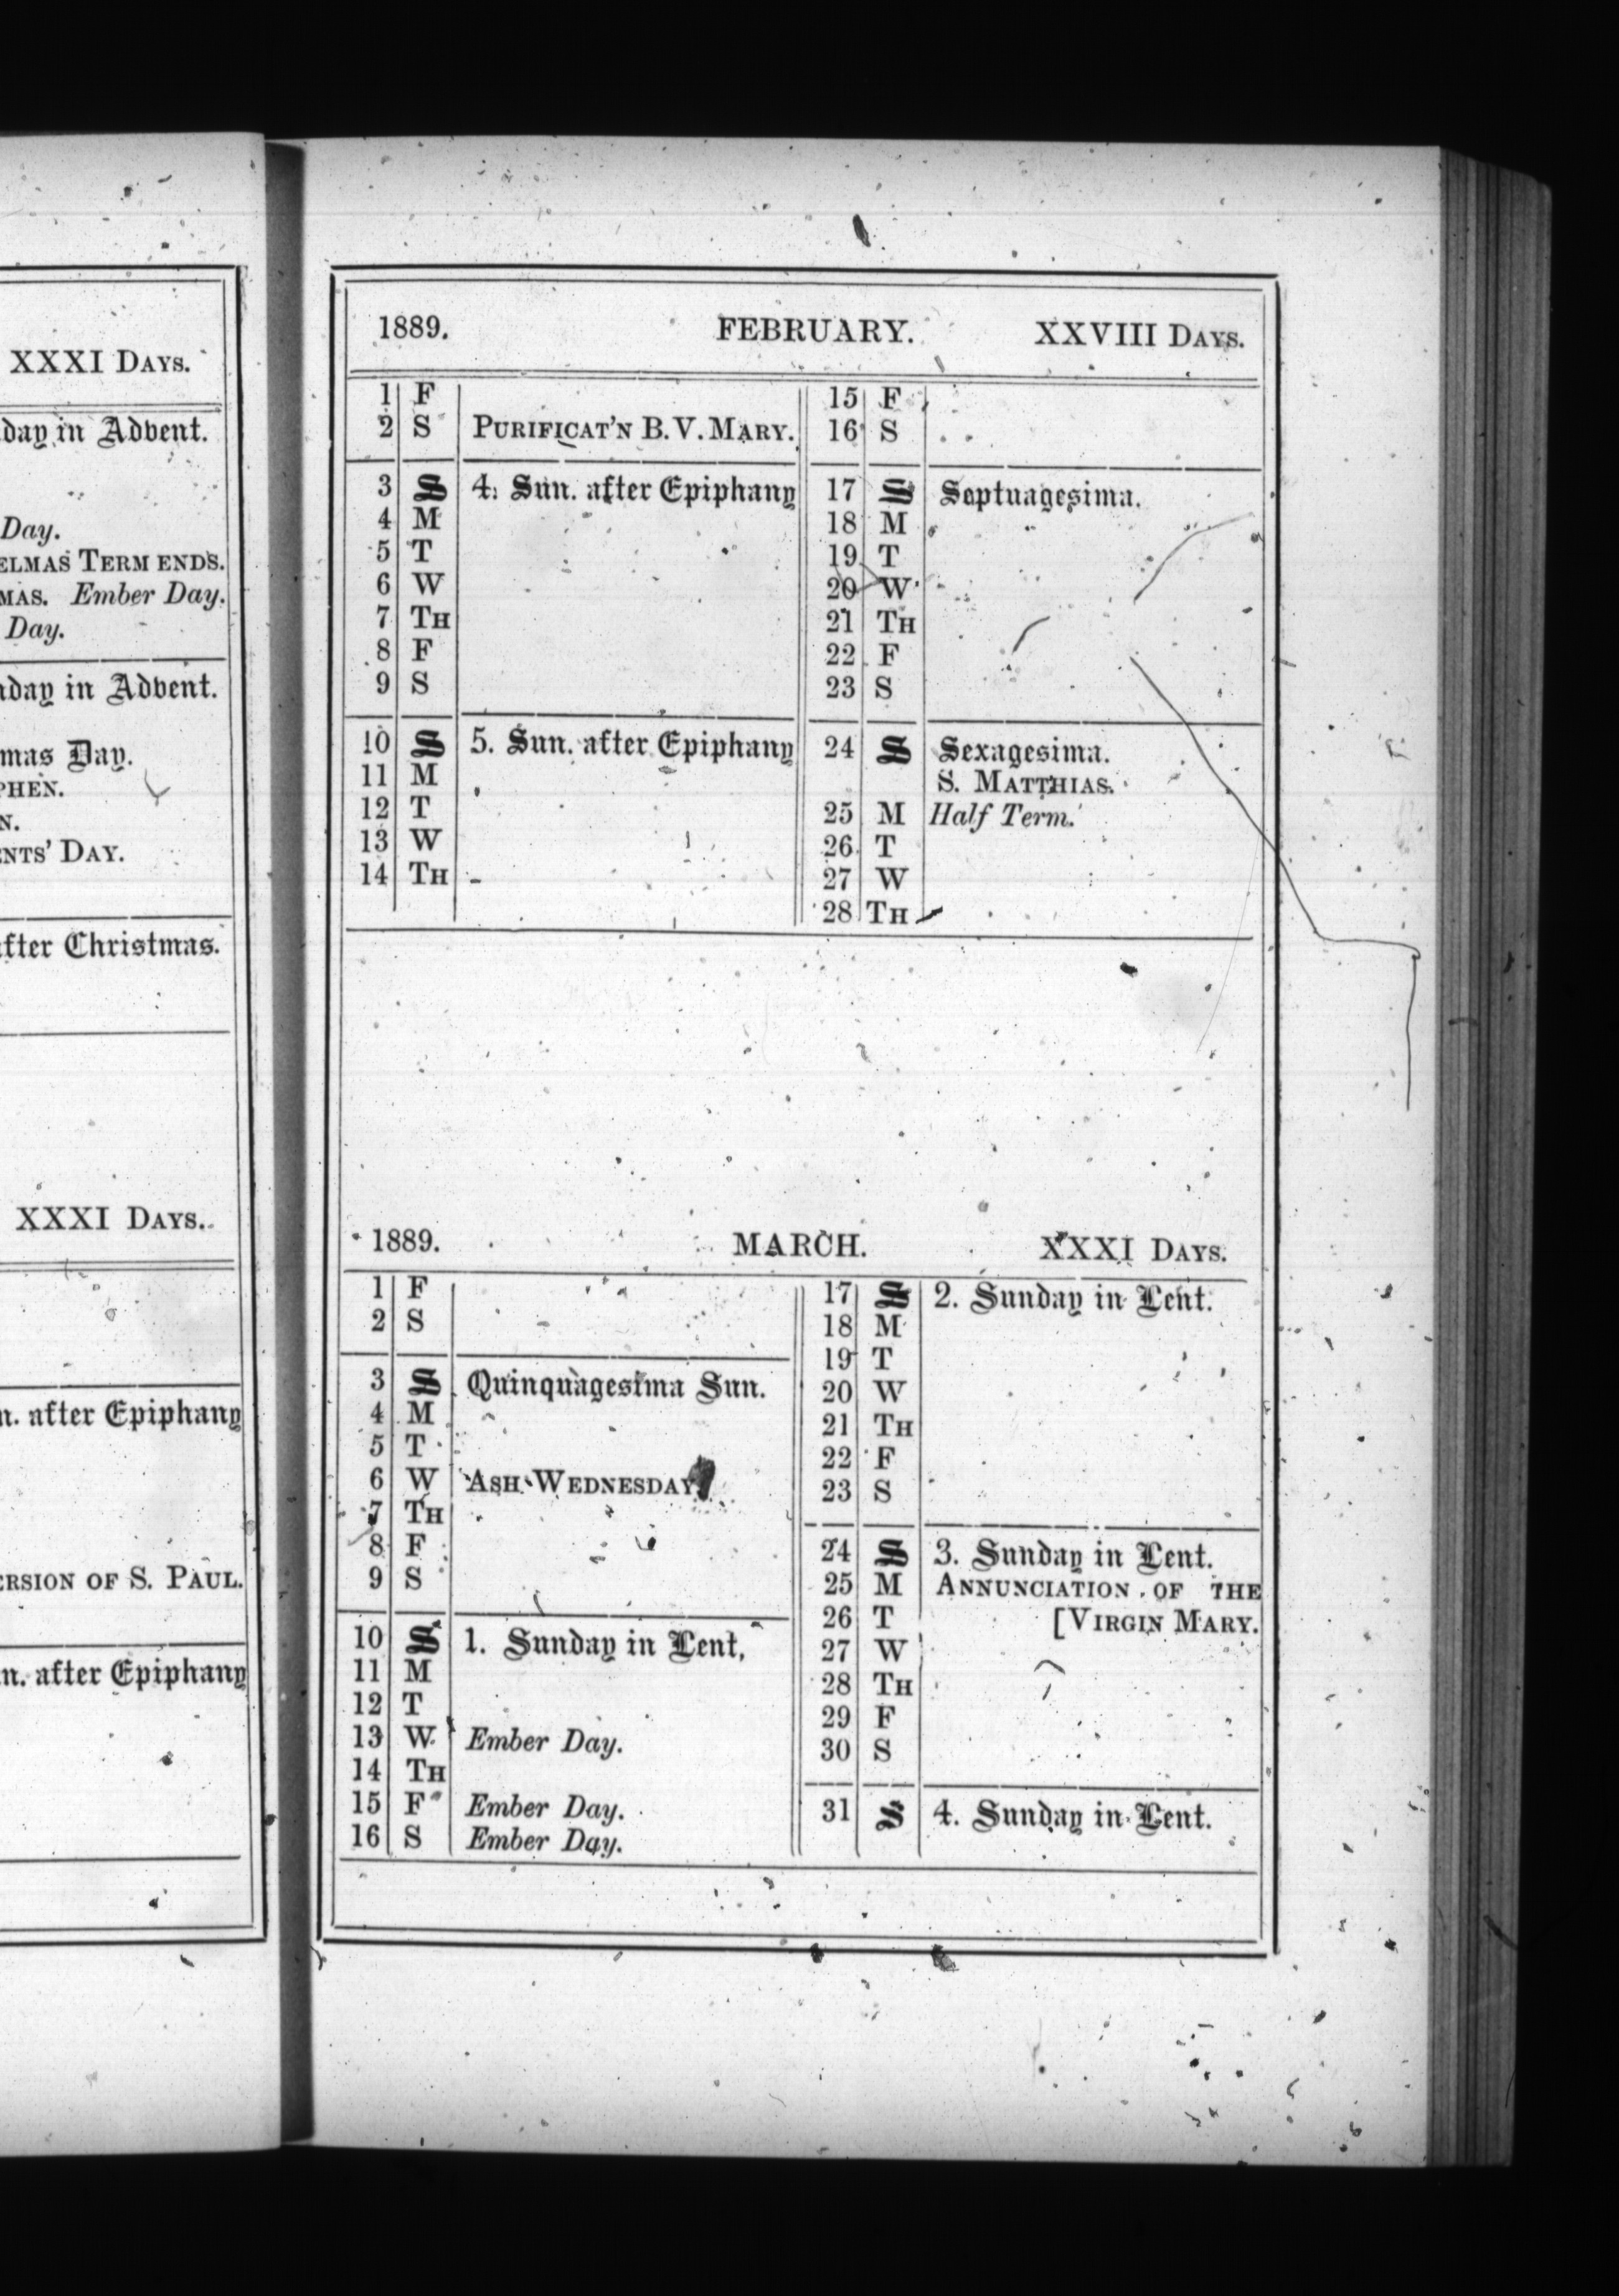 XXXI DAYS.
day in Advent.
Day.
ELMAS TERM ENDS.
MAS. Ember Day.
Day.
day in Advent.
mas Day.
PHEN.
N.
ENTS' DAY.
after Christmas.
XXXI DAYS.
n. after Epiphany
ERSION OF S. PAUL.
n. after Epiphany
1889. FEBRUARY. XXVIII DAYS.
1 F
2 S PURIFICAT'N B.V. MARY.
3 S 4. Sun. after Epiphany
4 M
5 T
6 W
7 TH
8 F
9 S
10 S 5. Sun. after Epiphany
11 M
12 T
13 W
14 TH
15 F
16 S
17 S Septuagesima.
18 M
19 T
20 W
21 TH
22 F
23 S
24 S Sexagesima.
S. MATTHIAS.
25 M Half Term.
26 T
27 W
28 TH
1889. MARCH. XXXI DAYS.
1 F
2 S
3 S Quinquagesima Sun.
4 M
5 T
6 W ASH WEDNESDAY
7 TH
8 F
9 S
10 S 1. Sunday in Lent,
11 M
12 T
13 W Ember Day.
14 TH
15 F Ember Day.
16 S Ember Day.
17 S 2. Sunday in Lent.
18 M
19 T
20 W
21 TH
22 F
23 S
24 S 3. Sunday in Lent.
25 M ANNUNCIATION OF THE
26 T [VIRGIN MARY.
27 W
28 TH
29 F
30 S
31 S 4. Sunday in Lent.